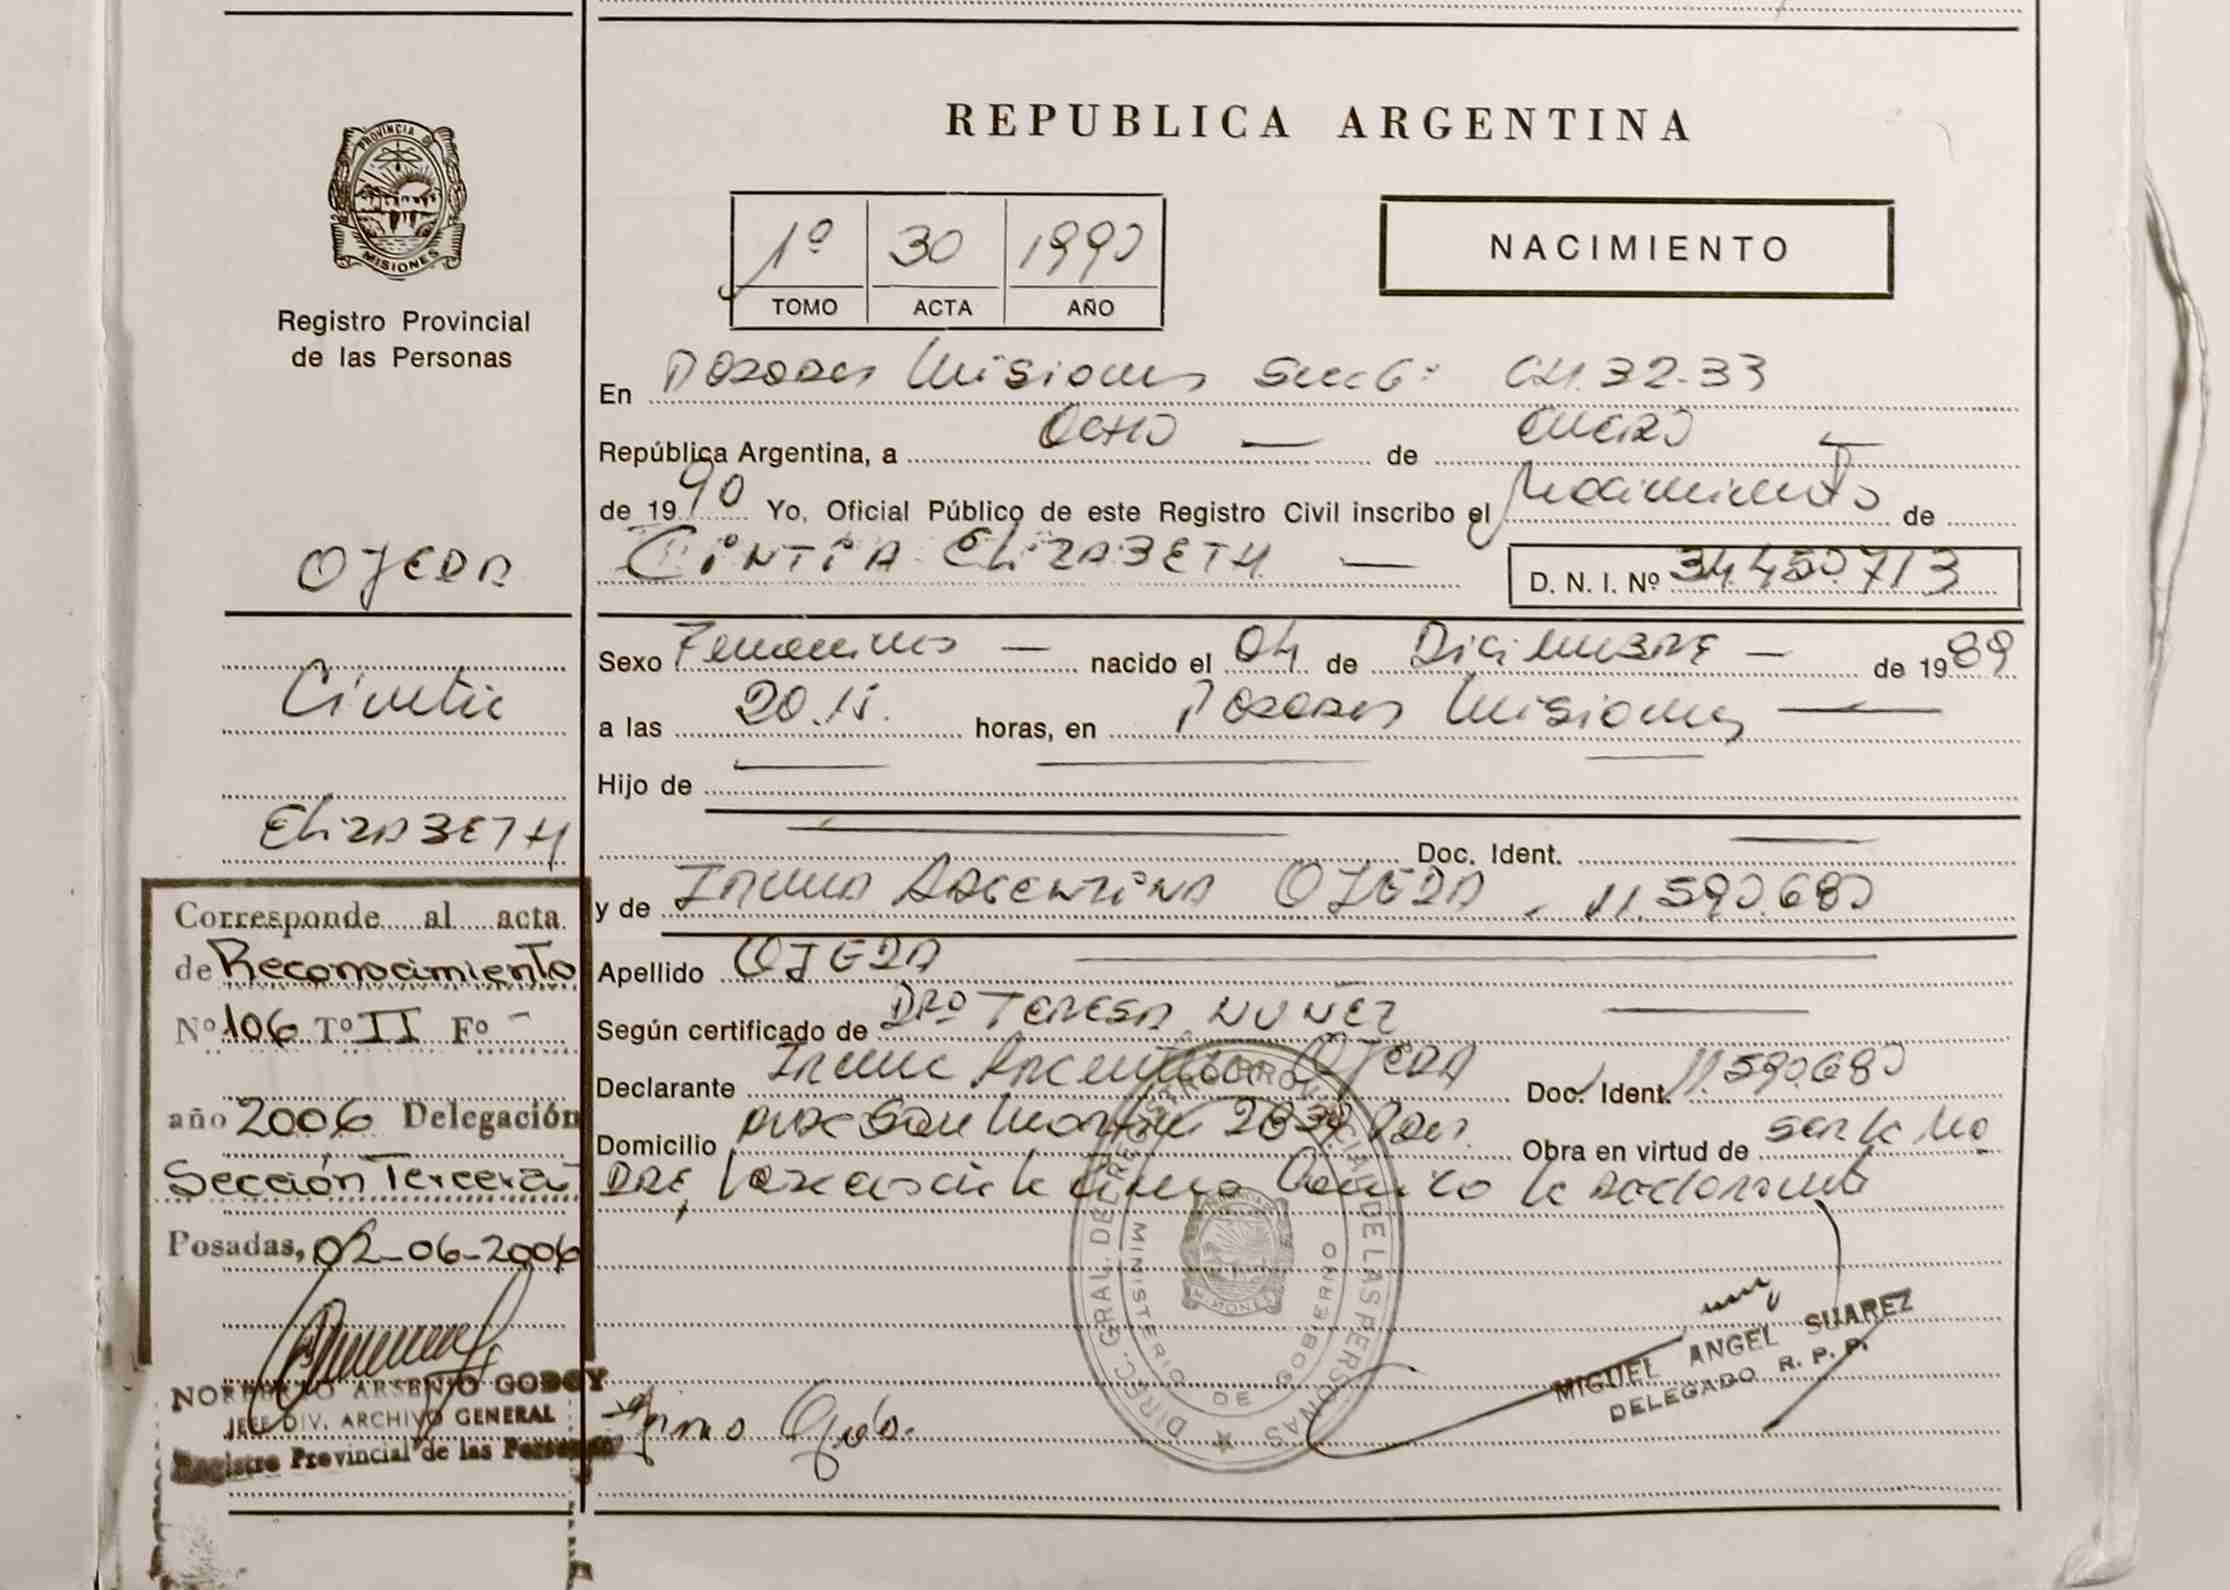 REPUBLICA ARGENTINA
PROVINCIA DE
MISIONES
Registro Provincial
de las Personas
1º 30 1990
TOMO ACTA AÑO
NACIMIENTO
En Posadas Misiones Secc 6: CH. 32-33
República Argentina, a Ocho — de Enero —
de 1990 Yo, Oficial Público de este Registro Civil inscribo el Nacimiento de
CINTIA ELIZABETH — D. N. I. Nº 34.450.713
OJEDA
Cintia
ELIZABETH
Sexo Femenino — nacido el 04 de Diciembre — de 1989
a las 20.15. horas, en Posadas Misiones —
Hijo de
Doc. Ident.
y de Irma Argentina OJEDA - 11.590.680
Apellido OJEDA
Según certificado de DRA TERESA NUÑEZ
Declarante Irma Argentina OJEDA Doc. Ident. 11.590.680
Domicilio San Martin Obra en virtud de ser la Ma
DRE, la declarante
Corresponde al acta
de Reconocimiento
Nº 106 Tº II Fº -
año 2006 Delegación
Sección Tercera
Posadas, 02-06-2006
NORBERTO ARSENIO GODOY
JEFE DIV. ARCHIVO GENERAL
Registro Provincial de las Personas
DIREC. GRAL. DE REGISTRO PROVINCIAL DE LAS PERSONAS
MINISTERIO DE GOBIERNO
MISIONES
Irma Ojeda.
MIGUEL ANGEL SUAREZ
DELEGADO R. P. P.